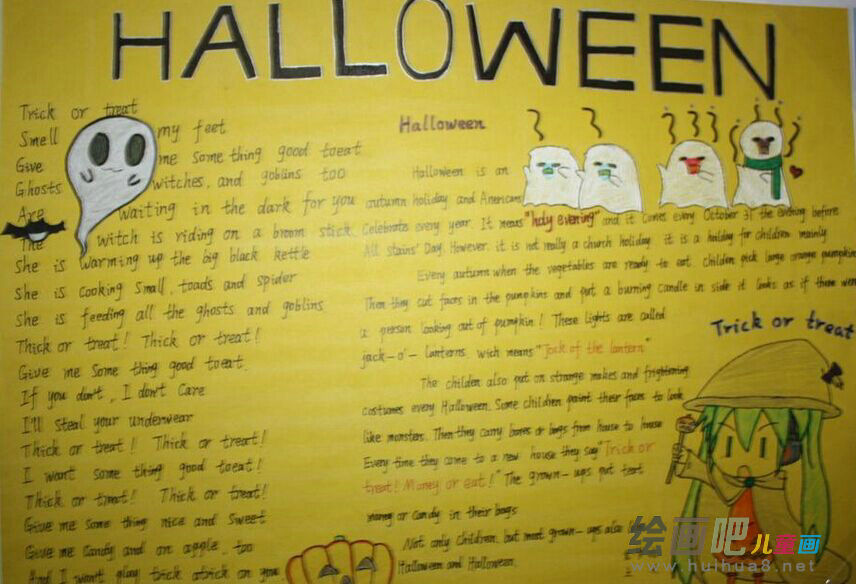 HALLOWEEN
Trick or treat
Smell my feet
Give me something good toeat
Ghosts witches, and goblins too
Are waiting in the dark for you
The witch is riding on a broom stick
She is warming up the big black kettle
She is cooking small, toads and spider
She is feeding all the ghosts and goblins
Thick or treat! Thick or treat!
Give me Some thing good toeat.
If you don't, I don't Care
I'll steal your underwear
Thick or treat!! Thick or treat!
I want some thing good toeat!
Thick or treat! Thick or treat!
Give me some thing nice and sweet
Give me candy and an apple, too
And I won't play trick atrick on you
Halloween
Halloween is an
autumn holiday and Anericans
Celebrate every year. It means "holy evening" and it comes every October 31 the evening before
All stains' Day. However, it is not really a church holiday. it is a holiday for children mainly
Every autumn when the vegetables are ready to eat. children pick large orange pumpkins
Then they cut faces in the pumpkins and put a burning candle in side it looks as if there were
a person looking out of pumpkin! These lights are called
jack-o'- lanterns. wich means "Jack of the lantern"
The childen also put on strange makes and frightening
costumes every Halloween. Some children paint their faces to look
like monsters. Then they carry boxes or bags from house to house
Every time they come to a new house they say "Trick or
treat! Money or eat!" The grown-ups put teat
money or candy in their bags
Not only children, but most grown-ups also
Halloween and Halloween.
Trick or treat
绘画吧儿童画
www.huihua8.net